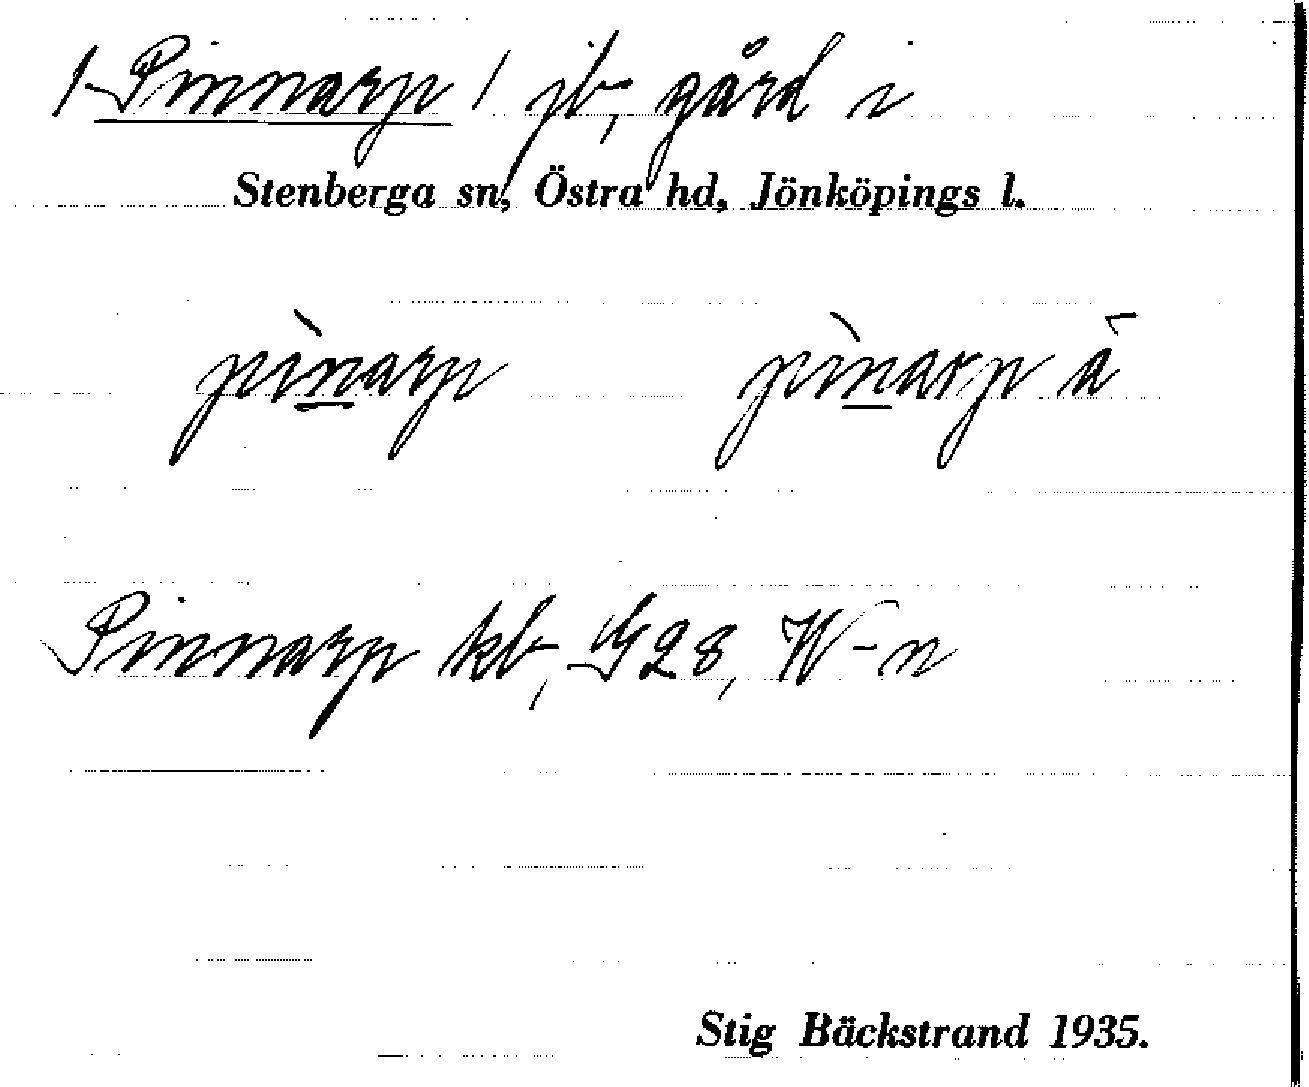 / Pinnarp / jb, gård i
Stenberga sn, Östra hd, Jönköpings l.
pìnarp pìnarp á
Pinnarp kb, G28, W-n
Stig Bäckstrand 1935.